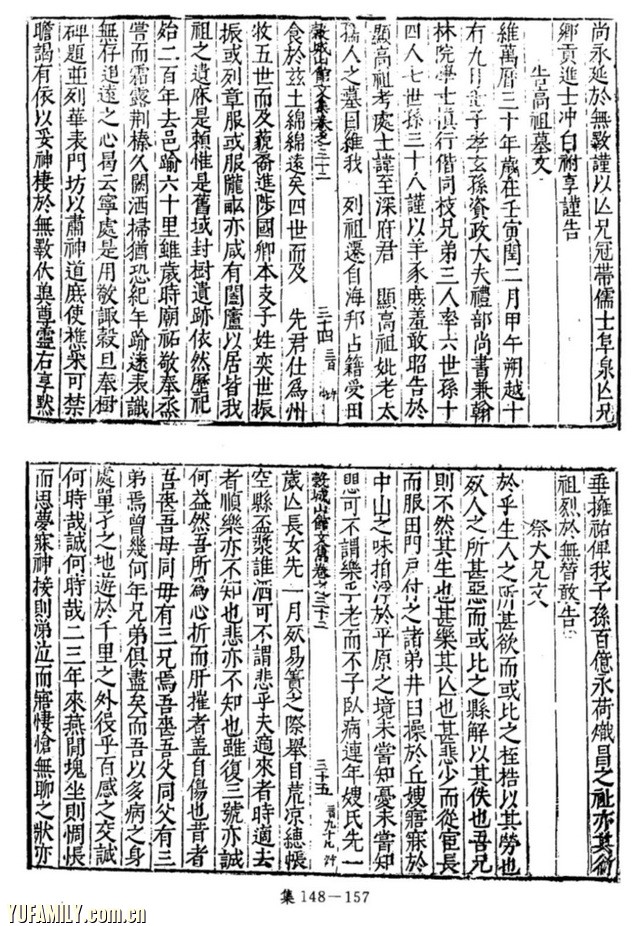 尚永延於無斁謹以亡兄冠帶儒士阜泉亡兄
鄉貢進士冲白祔享謹告
告高祖墓文
維萬曆三十年歲在壬寅閏二月甲午朔越十
有九日壬子孝玄孫資政大夫禮部尚書兼翰
林院學士慎行偕同枝兄弟三人率六世孫十
四人七世孫三十八謹以羊豕庶羞敢昭告於
顯高祖考處士諱至深府君 顯高祖妣老太
孺人之墓曰維我 列祖遷自海邦占籍受田
穀城山館文集卷之三十三 三十四
食於茲土綿綿遠矣四世而及 先君仕為州
牧五世而及藐裔進陟國卿本支子姓奕世振
振或列章服或服隴畝亦咸有閭廬以居皆我
祖之遺庥是賴惟是舊域封樹遺跡依然歷祀
始二百年去邑踰六十里雖歲時廟祐敬奉烝
嘗而霜露荆榛久闕洒掃猶恐紀年踰遠表識
無存追遠之心曷云寧處是用敬諏穀旦奉樹
碑題並列華表門坊以肅神道庶使樵采可禁
瞻謁有依以妥神棲於無斁伏兾尊靈右享默
垂擁祐俾我子孫百億永荷熾昌之祉亦其衍
祖烈於無替敢告
祭大兄文
於乎生人之所甚欲而或比之桎梏以其勞也
死人之所甚惡而或比之縣解以其佚也吾兄
則不然其生也甚樂其亡也甚悲少而從宦長
而服田門戶付之諸弟井臼操於丘嫂寤寐於
中山之味拍浮於平原之境未嘗知憂未嘗知
思可不謂樂乎老而不子臥病連年嫂氏先一
穀城山館文集卷之三十三 三十五
歲亡長女先一月死易簀之際舉目荒凉繐帳
空縣盃漿誰洒可不謂悲乎夫適來者時適去
者順樂亦不知也悲亦不知也雖復三號亦誠
何益然吾所為心折而肝摧者盖自傷也昔者
吾喪吾母同母有三兄焉吾喪吾父同父有三
弟焉曾幾何年兄弟俱盡矣而吾以多病之身
處單孑之地遊於千里之外役乎百感之交誠
何時哉誠何時哉二三年來燕閒塊坐則惆悵
而思夢寐神接則涕泣而寤悽愴無聊之狀亦
集 148－157
YUFAMILY.com.cn